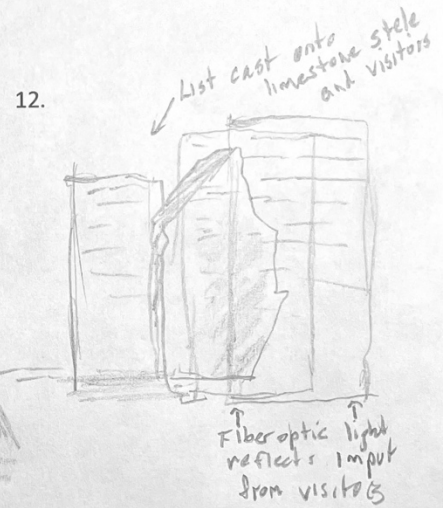 12.
List cast onto
limestone stele
and visitors
Fiberoptic light
reflects input
from visitors